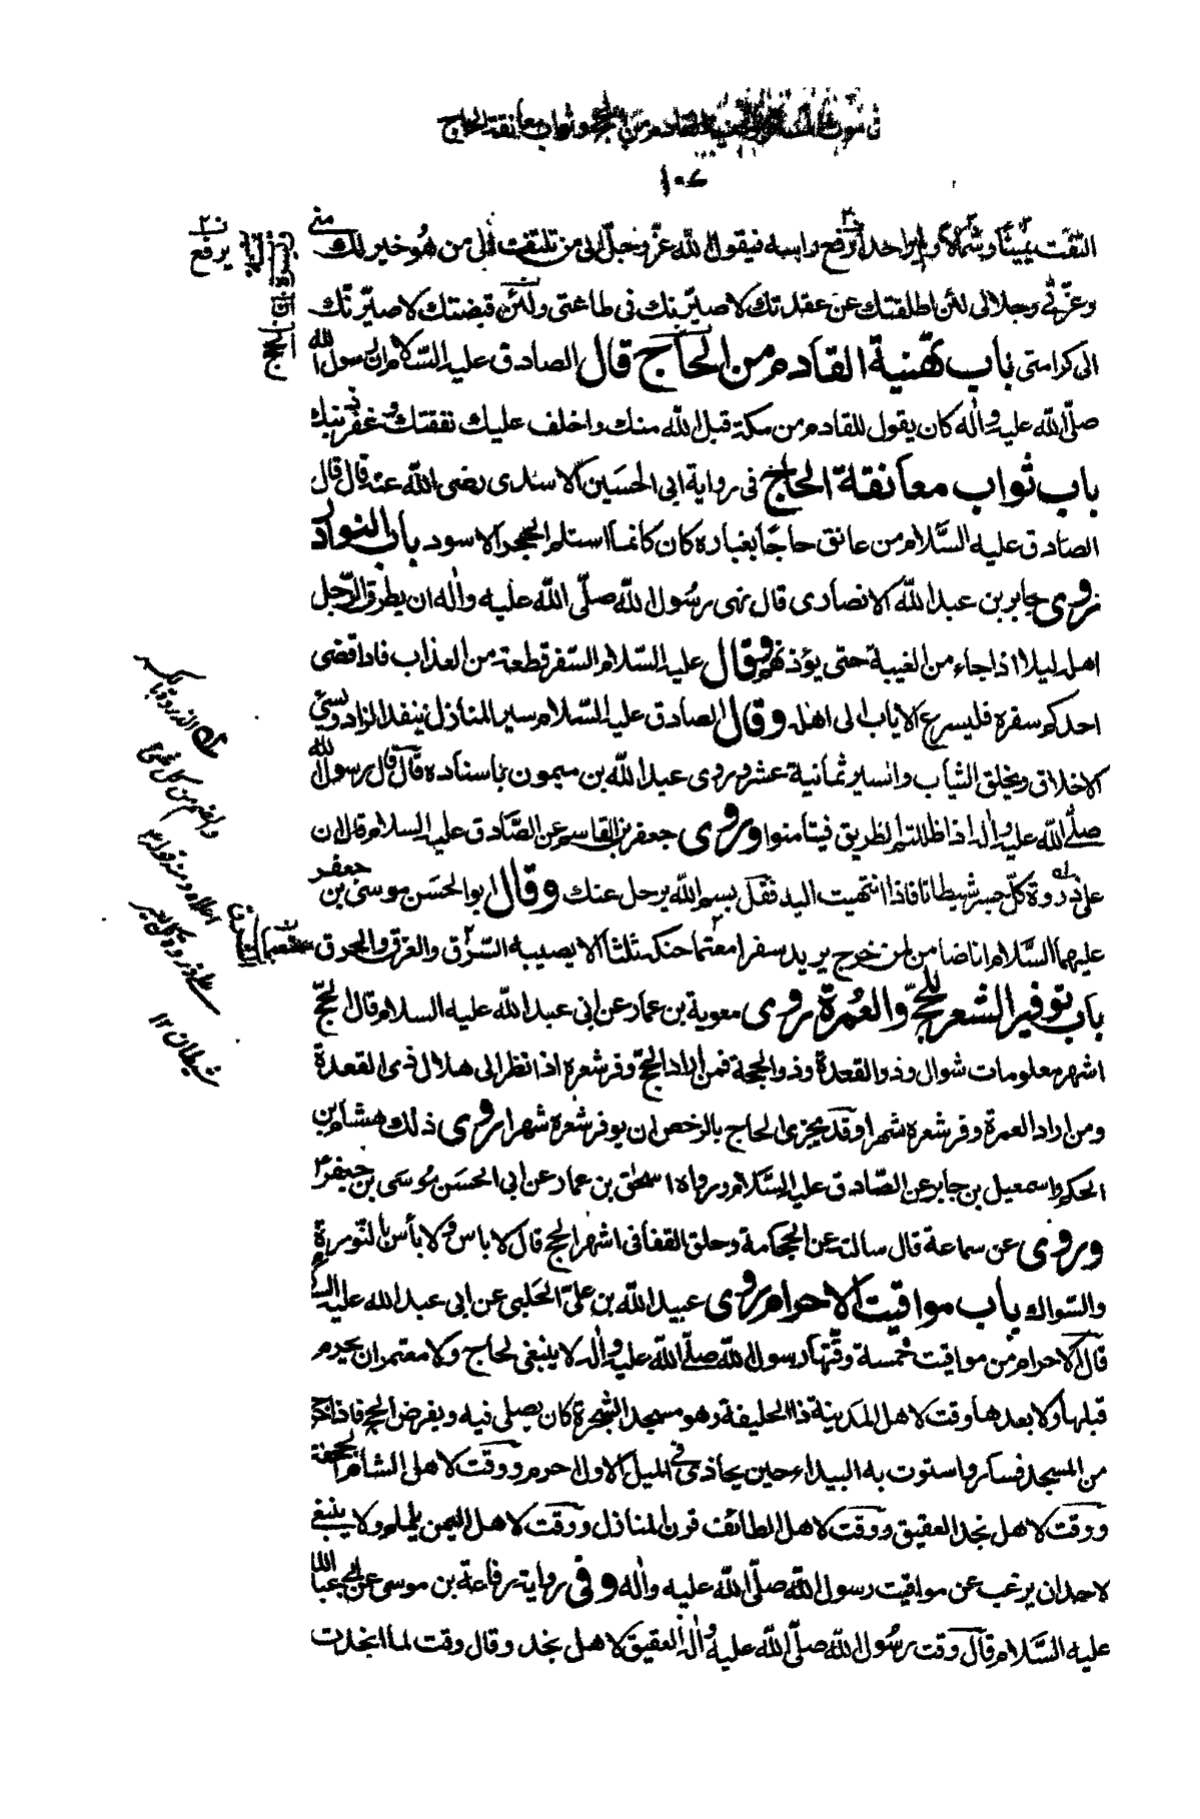 القادم من الحج وثواب معانقة الحاج
١٠٧
التفت يمينا وشمالا ولم ير احدا يرفع راسه فيقول الله عز وجل الى من تلتفت الى من هو خير لك منى
وعزتى وجلالى لئن اطلقتك عن عقدتك لاصيرنك فى طاعتى ولئن قبضتك لاصيرنك
الى كرامتى باب تهنية القادم من الحاج قال الصادق عليه السلام ان رسول الله
صلى الله عليه واله كان يقول للقادم من مكة قبل الله منك واخلف عليك نفقتك وغفر ذنبك
باب ثواب معانقة الحاج فى رواية ابى الحسين الاسدى رضى الله عنه قال قال
الصادق عليه السلام من عانق حاجا بغباره كان كانما استلم الحجر الاسود باب النوادر
روى جابر بن عبد الله الانصارى قال نهى رسول الله صلى الله عليه واله ان يطرق الرجل
اهله ليلا اذا جاء من الغيبة حتى يؤذنهم وقال عليه السلام السفر قطعة من العذاب فاذا قضى
احدكم سفره فليسرع الاياب الى اهله وقال الصادق عليه السلام سير المنازل ينفد الزاد ويسئ
الاخلاق ويخلق الثياب والسير ثمانية عشر وروى عبد الله بن ميمون باسناده قال قال رسول الله
صلى الله عليه واله اذا ظللتم الطريق فتيامنوا وروى جعفر بن القاسم عن الصادق عليه السلام قال ان
على ذروة كل جسر شيطانا فاذا انتهيت اليه فقل بسم الله يرحل عنك وقال ابو الحسن موسى بن جعفر
عليهما السلام انا ضامن لمن خرج يريد سفرا معتما حنكه ثلثا الا يصيبه السرق والغرق والحرق
باب توفير الشعر للحج والعمرة روى معوية بن عمار عن ابى عبد الله عليه السلام قال الحج
اشهر معلومات شوال وذو القعدة وذو الحجة فمن اراد الحج وفر شعره اذا نظر الى هلال ذى القعدة
ومن اراد العمرة وفر شعره شهرا وقد يجزى الحاج بالرخص ان يوفر شعره شهرا روى ذلك هشام بن
الحكم واسمعيل بن جابر عن الصادق عليه السلام ورواه اسحق بن عمار عن ابى الحسن موسى بن جعفر
وروى عن سماعة قال سالته عن الحجامة وحلق القفا فى اشهر الحج قال لا باس ولا بأس بالنورة
والسواك باب مواقيت الاحرام روى عبيد الله بن على الحلبى عن ابى عبد الله عليه السلام
قال الاحرام من مواقيت خمسة وقتها رسول الله صلى الله عليه واله لا ينبغى لحاج ولا معتمر ان يحرم
قبلها ولا بعدها وقت لاهل المدينة ذا الحليفة وهو مسجد الشجرة كان يصلى فيه ويفرض الحج فاذا خرج
من المسجد فسار واستوت به البيداء حين يحاذى الميل الاول احرم ووقت لاهل الشام الجحفة
ووقت لاهل نجد العقيق ووقت لاهل الطائف قرن المنازل ووقت لاهل اليمن يلملم ولا ينبغى
لاحد ان يرغب عن مواقيت رسول الله صلى الله عليه واله وفى رواية رفاعة بن موسى عن ابى عبد الله
عليه السلام قال وقت رسول الله صلى الله عليه واله العقيق لاهل نجد وقال وقت لما انجدت
يرفع
شيطان ١٢